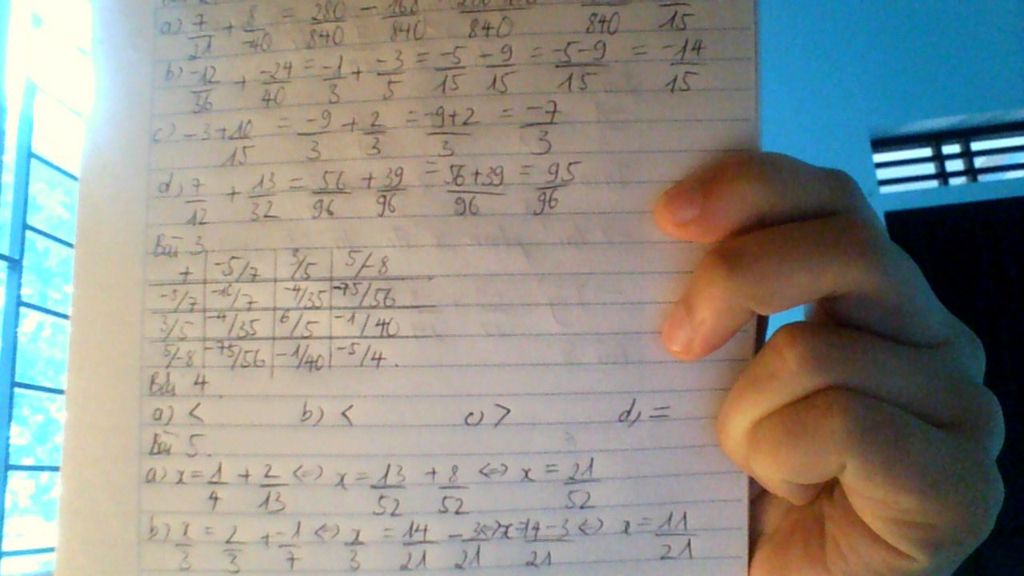 a) 7/21 + 8/-40 = 280/840 - 168/840 840 840 15
b) -12/36 + -24/40 = -1/3 + -3/5 = -5/15 - 9/15 = -5-9/15 = -14/15
c) -3 + 10/15 = -9/3 + 2/3 = -9+2/3 = -7/3
d, 7/12 + 13/32 = 56/96 + 39/96 = 56+39/96 = 95/96
Bài 3
+ -5/7 3/5 5/-8
-5/7 -10/7 -4/35 -75/56
3/5 -4/35 6/5 -1/40
5/-8 -75/56 -1/40 -5/4.
Bài 4
a) < b) < c) > d, =
Bài 5.
a) x = 1/4 + 2/13 <=> x = 13/52 + 8/52 <=> x = 21/52
b) x/3 = 2/3 + -1/7 <=> x/3 = 14/21 - 3/21 <=> x = 14-3/21 <=> x = 11/21